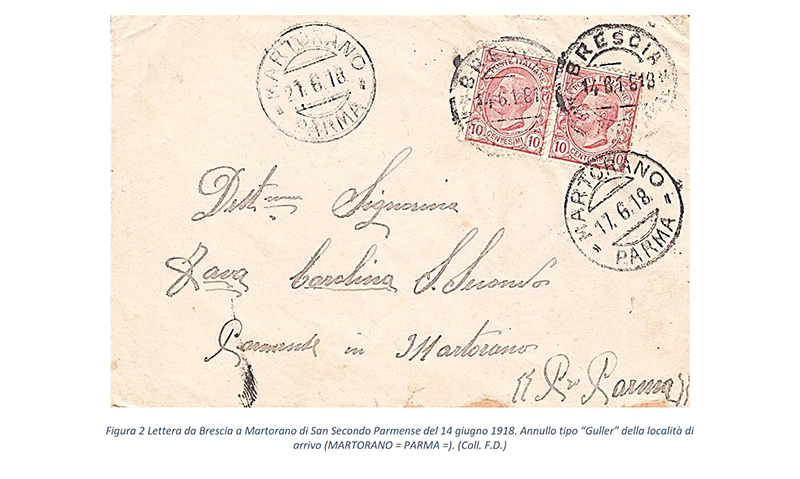 MARTORANO
21.6.18
= PARMA =
BRESCIA
14.6.18
BRESCIA
14.6.1.618
POSTE ITALIANE
10 CENTESIMI 10
10 CENTESIMI 10
MARTORANO
17.6.18.
= PARMA =
Signorina
Zava Carolina S. Secondo
Parmense in Martorano
Parma
Figura 2 Lettera da Brescia a Martorano di San Secondo Parmense del 14 giugno 1918. Annullo tipo “Guller” della località di
arrivo (MARTORANO = PARMA =). (Coll. F.D.)